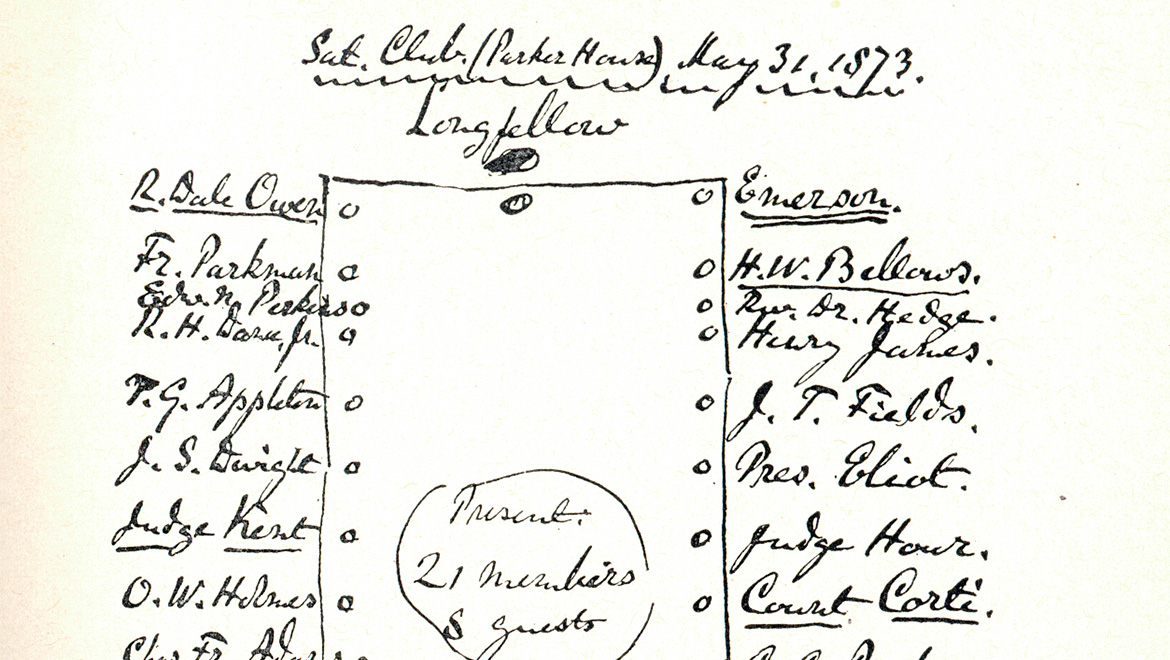 Sat. Club. (Parker House) May 31, 1873.
Longfellow
R. Dale Owen
Emerson.
Fr. Parkman
H. W. Bellows.
Edw. N. Perkins
Rev. Dr. Hedge.
R. H. Dana, Jr.
Henry James.
T. G. Appleton
J. T. Fields.
J. S. Dwight
Pres. Eliot.
Judge Kent
Judge Hoar.
O. W. Holmes
Count Corti.
Present:
21 members
8 guests